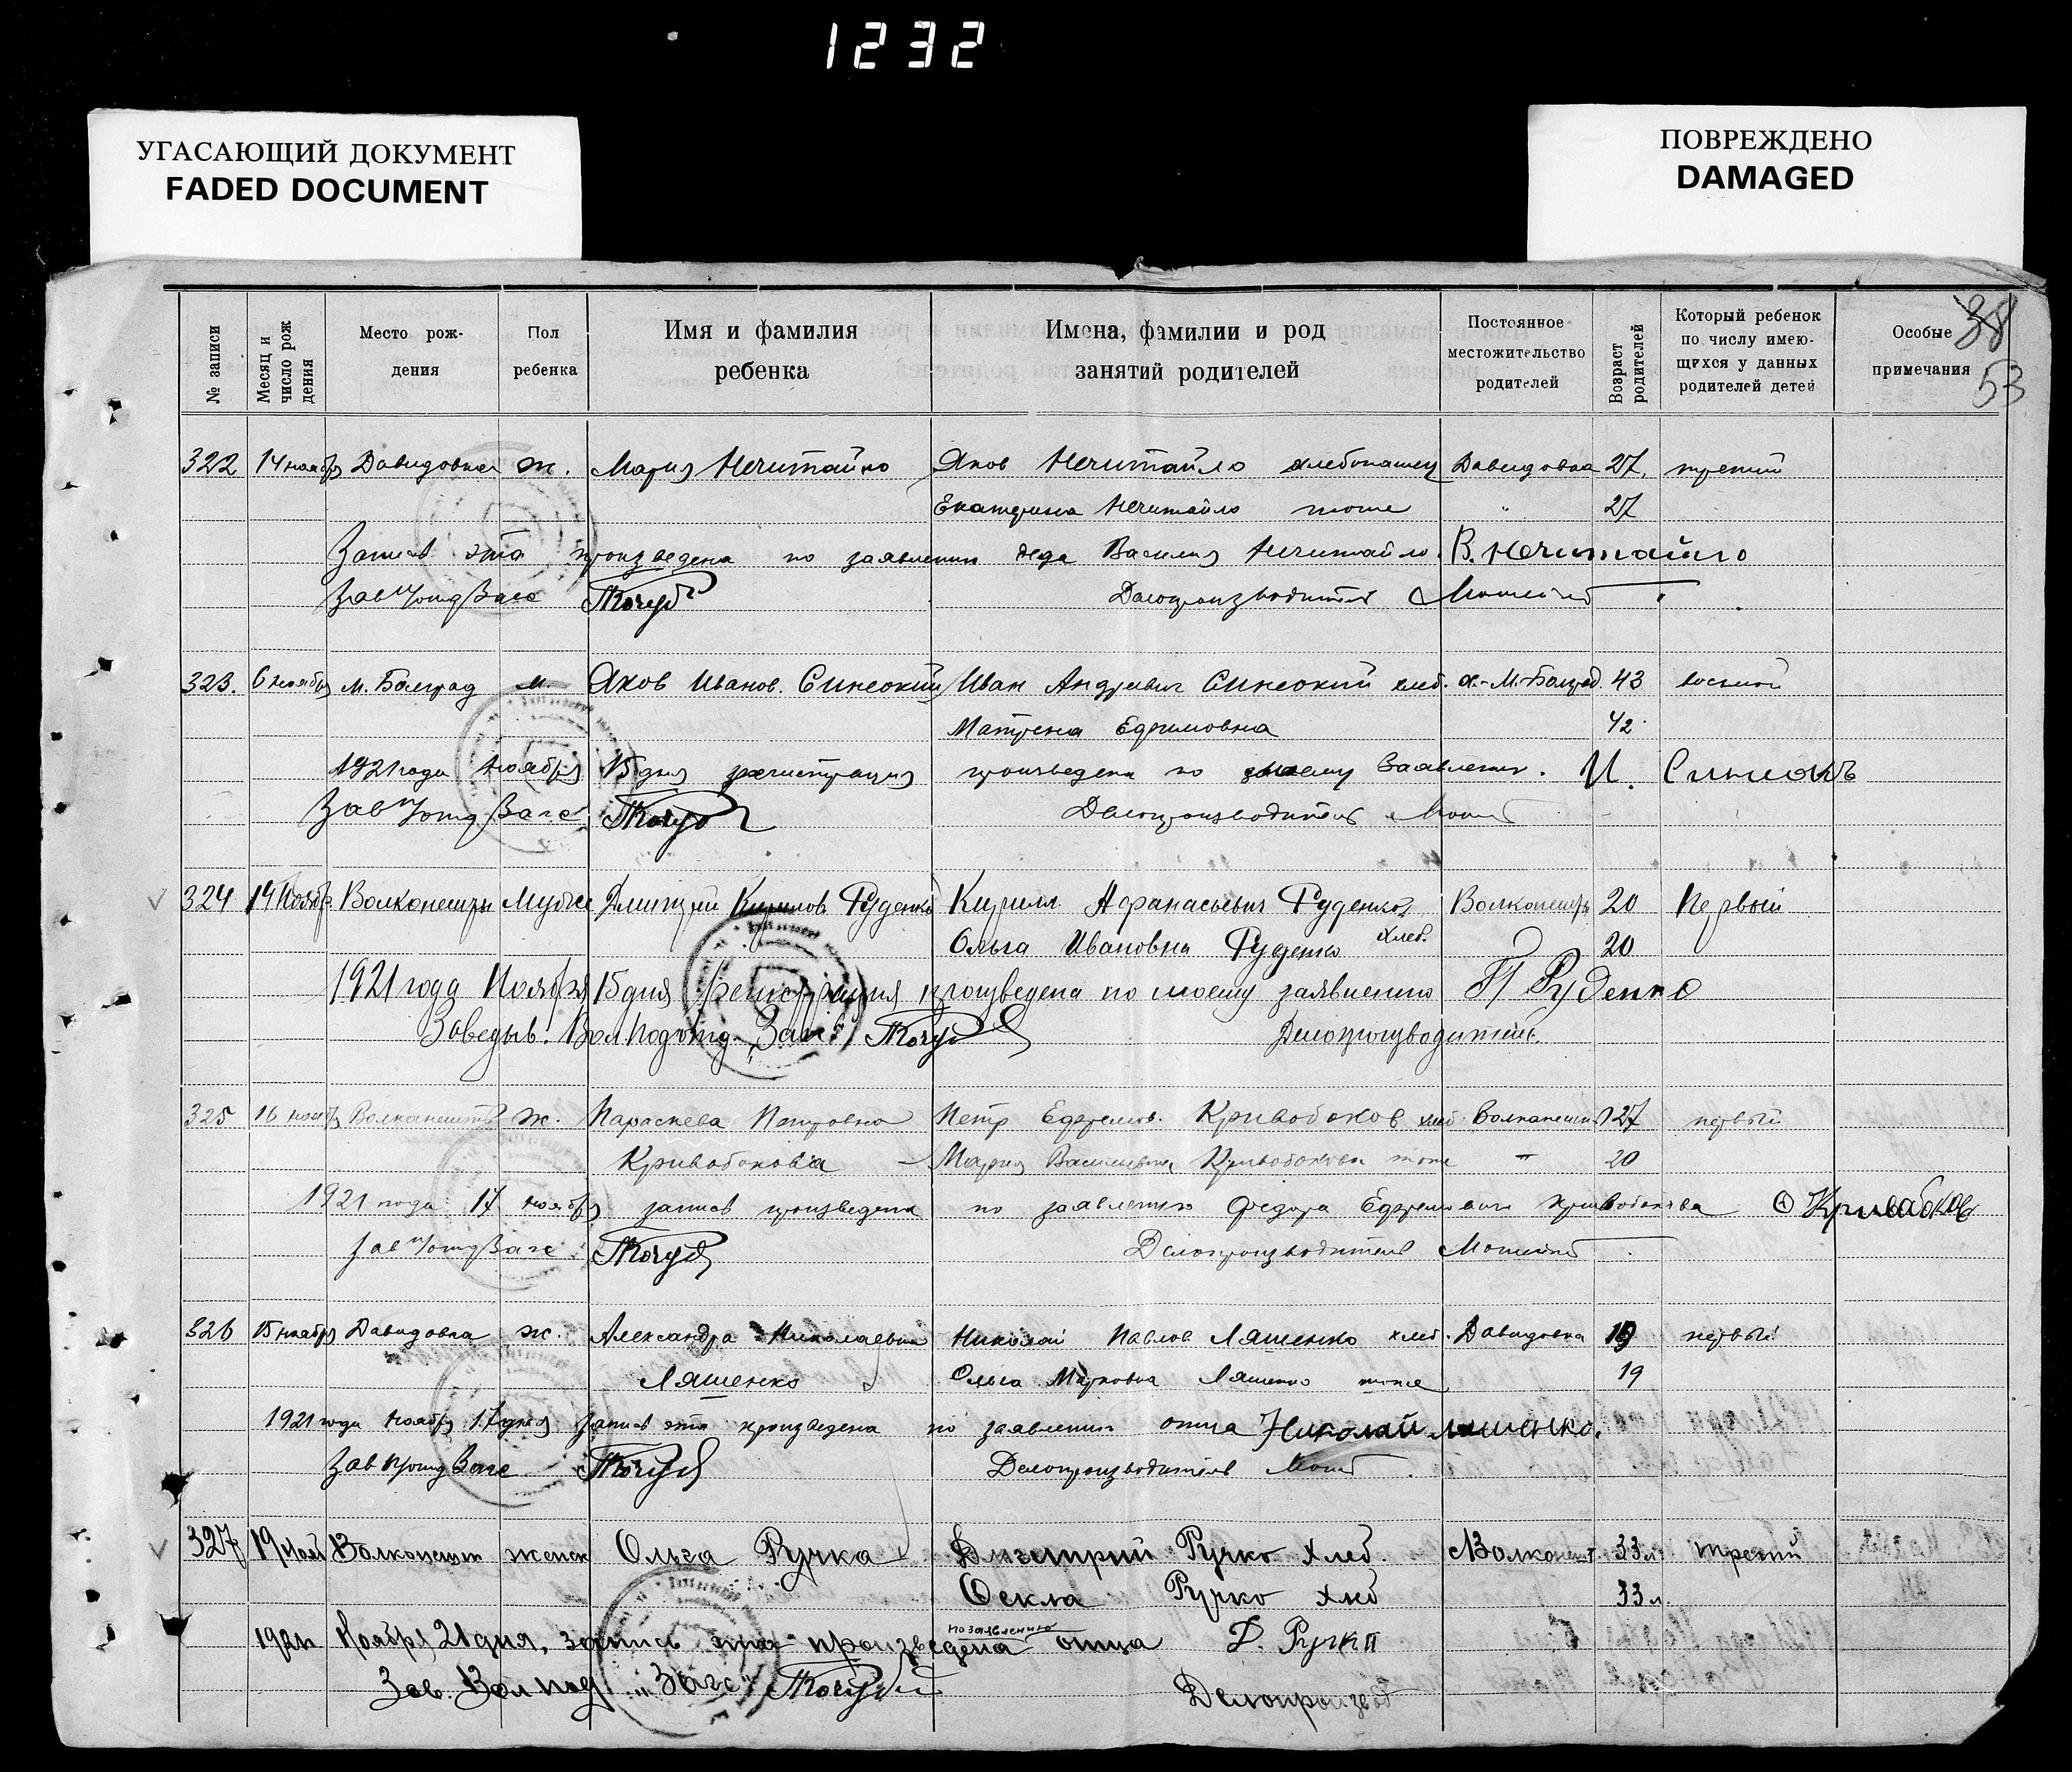 1232
УГАСАЮЩИЙ ДОКУМЕНТ
FADED DOCUMENT
ПОВРЕЖДЕНО
DAMAGED
38
53
№ записи
Месяц и число рождения
Место рож-
дения
Пол
ребенка
Имя и фамилия
ребенка
Имена, фамилии и род
занятий родителей
Постоянное
местожительство
родителей
Возраст
родителей
Который ребенок
по числу имею-
щихся у данных
родителей детей
Особые
примечания
322 14 ноября Давидовка ж. Мария Нечитайло Яков Нечитайло хлебопашец Давидовка 27, третий
Екатерина Нечитайло тоже " 27
Запись эта произведена по заявлению деда Василия Нечитайло. В. Нечитайло
Делопроизводитель
323. 6 ноября м. БаЛград м. Яков Иванов. Синеокий Иван Андреевич Синеокий хлеб. 43 восьмой
Матрена Ефимовна 42
1921 года Ноября 15 дня регистрация произведена по моему Заявлению. И.
Делопроизводитель
324 14 Нояб. Волконешты Мужс Дмитрий Кирилов Руденко Кирилл Афанасьевич Руденко Волконешты 20 Первый
Ольга Ивановна Руденко хлеб. 20
1921 года Ноября 15 дня Регистрация произведена по моему заявлению Руденко
Заведыв. Вол подотд. Загс Делопроизводитель
325 16 нояб Волканешты ж. Параскева Петровна Петр Ефремов. Кривобоков хлеб. Волканешты 27 первый
Кривобокова Мария Васильевна Кривобокова тоже " 20
1921 года 17 ноября запись произведена по заявлению Федора Ефремовича Кривобокова
Делопроизводитель
326 15 ноября Давидовка ж. Александра Николаевна Николай Павлов Ляшенко хлеб. Давидовка 19 первый
Ляшенко Ольга Марковна Ляшенко тоже 19
1921 года Ноября 17 дня запись эта произведена по заявлению отца Николай Ляшенко.
Делопроизводитель
327 19 Нояб Волконешт женск Ольга Ручка Дмитрий Ручко Хлеб. Волконешт 33 л. третий
Фекла Ручко хлеб 33 л.
1921 г. Ноября 21 дня, запись эта произведена по заявлению отца Д. Ручка
Зав. Вол под. „Загс" Делопроизвод